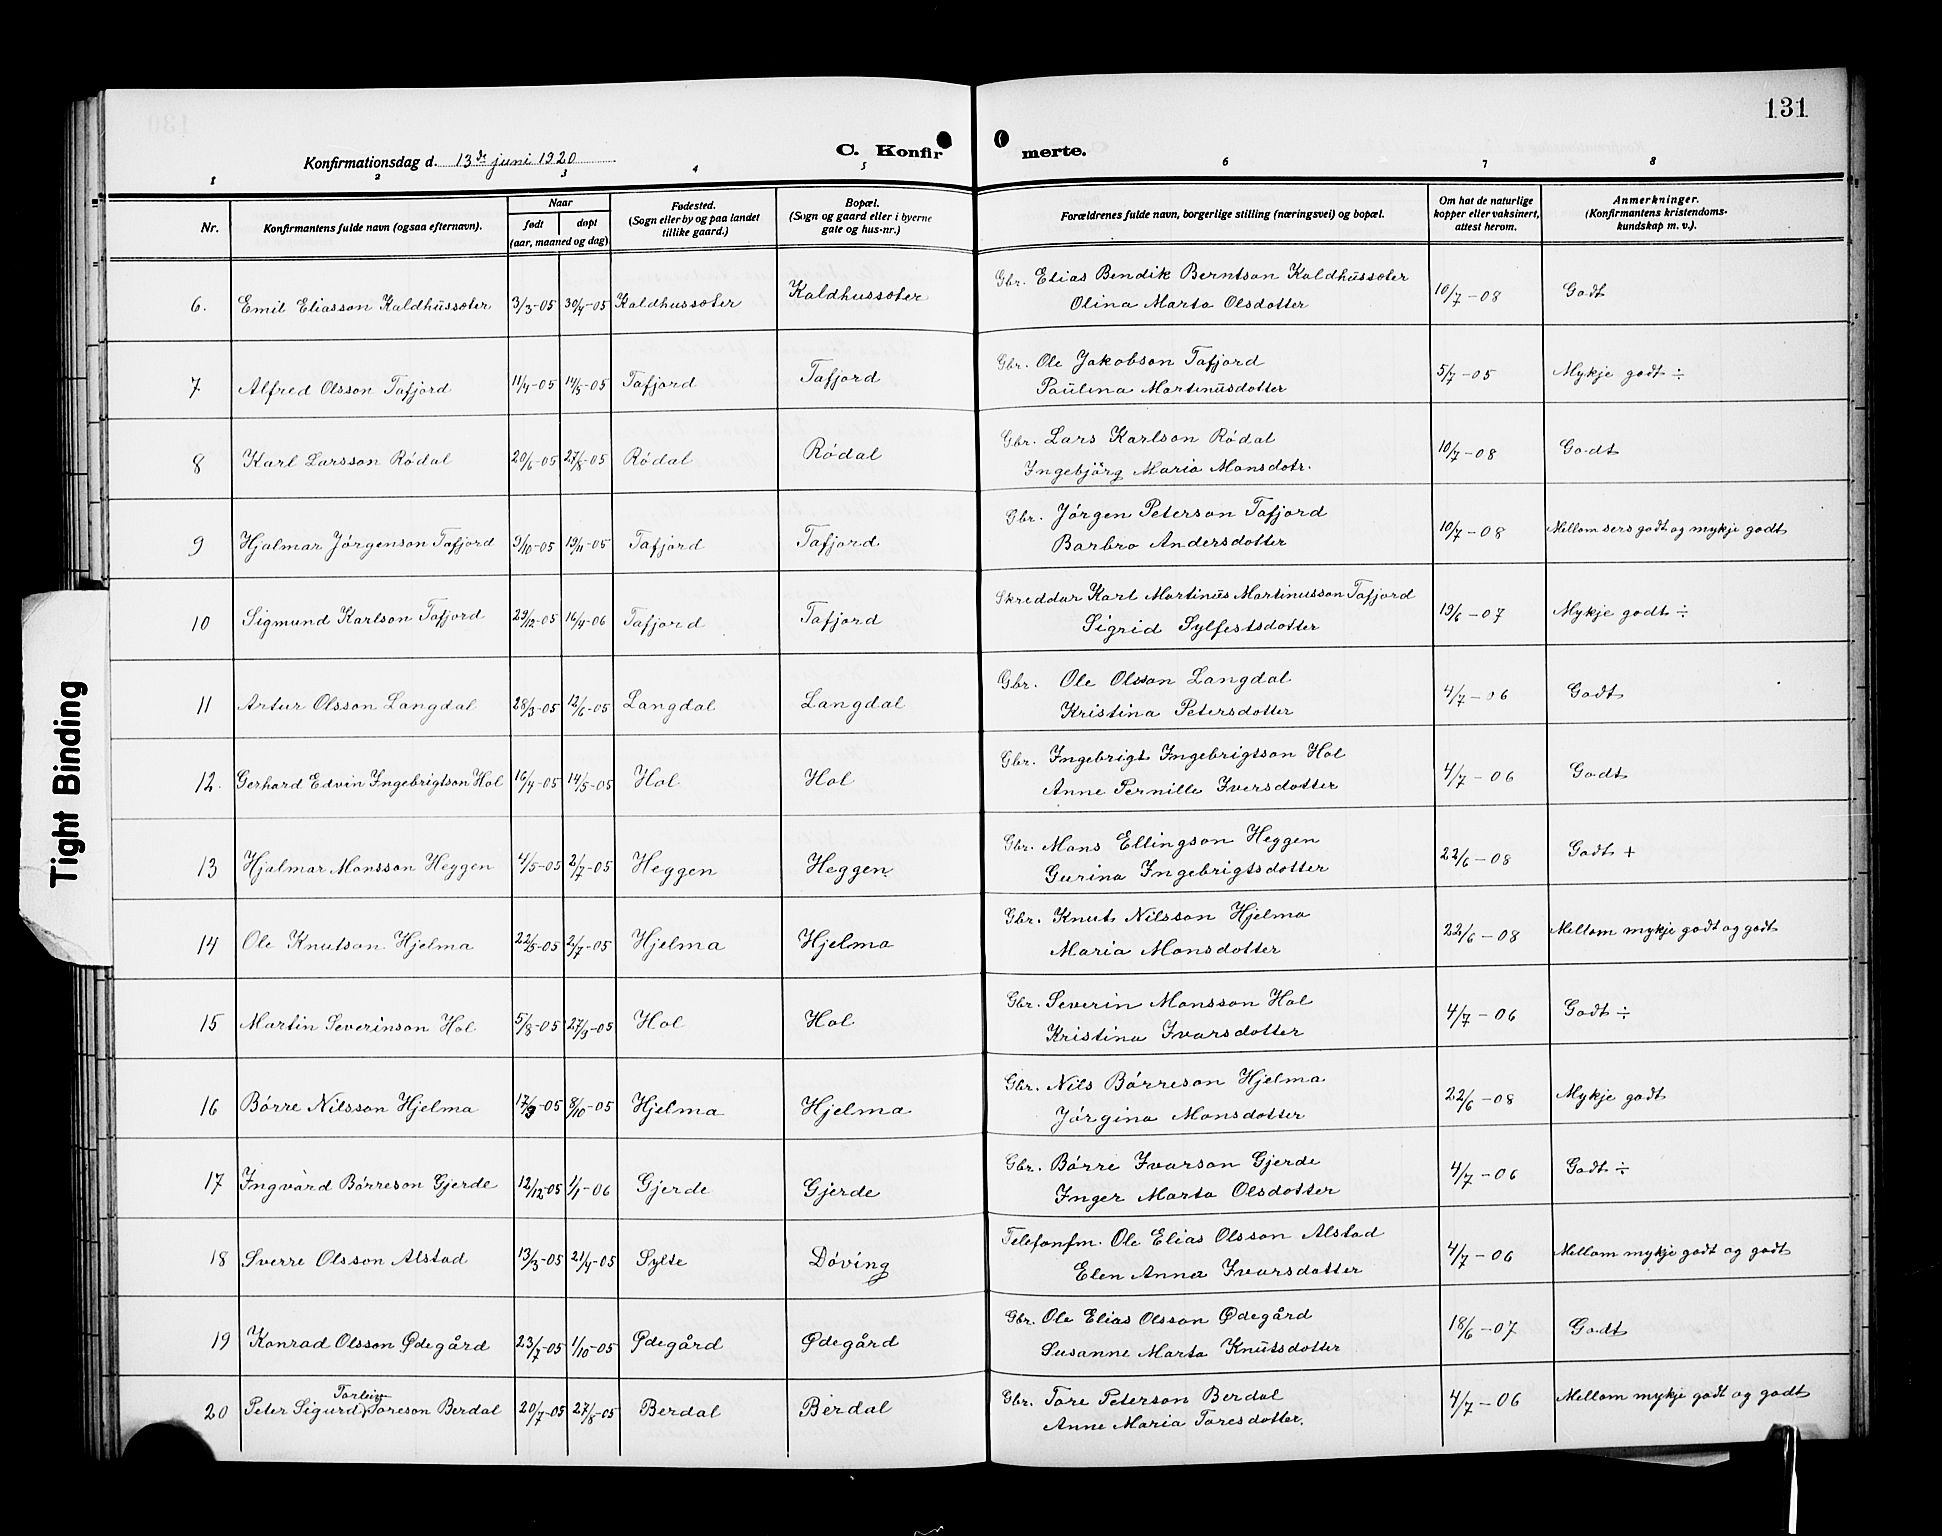 131
Konfirmationsdag d. 13de juni 1920
C. Konfirmerte.
1 2 3 4 5 6 7 8
Nr. Konfirmantens fulde navn (ogsaa efternavn). Naar født døpt (aar, maaned og dag) Fødested. (Sogn eller by og paa landet tillike gaard.) Bopæl. (Sogn og gaard eller i byerne gate og hus-nr.) Forældrenes fulde navn, borgerlige stilling (næringsvei) og bopæl. Om hat de naturlige kopper eller vaksinert, attest herom. Anmerkninger. (Konfirmantens kristendomskundskap m. v.).
6. Emil Eliasson Kaldhussæter 3/3-05 30/4-05 Kaldhussæter Kaldhussæter Gbr. Elias Bendik Berntson Kaldhussæter 10/7-08 Godt
Olina Marta Olsdotter
7 Alfred Olsson Tafjord 11/4-05 14/5-05 Tafjord Tafjord Gbr. Ole Jakobson Tafjord 5/7-05 Mykje godt ÷
Paulina Martinusdotter
8 Karl Larsson Rödal 20/6-05 27/8-05 Rödal Rödal Gbr. Lars Karlson Rödal 10/7-08 Godt
Ingebjörg Maria Monsdotr.
9 Hjalmar Jörgenson Tafjord 9/10-05 19/11-05 Tafjord Tafjord Gbr. Jörgen Peterson Tafjord 10/7-08 Mellom sers godt og mykje godt
Barbro Andersdotter
10 Sigmund Karlson Tafjord 29/12-05 16/4-06 Tafjord Tafjord Skreddar Karl Martinus Martinusson Tafjord 19/6-07 Mykje godt ÷
Sigrid Sylfestsdotter
11 Artur Olsson Langdal 28/3-05 12/6-05 Langdal Langdal Gbr. Ole Olsson Langdal 4/7-06 Godt
Kristina Petersdotter
12. Gerhard Edvin Ingebrigtson Hol 16/4-05 14/5-05 Hol Hol Gbr. Ingebrigt Ingebrigtson Hol 4/7-06 Godt
Anne Pernille Iversdotter
13 Hjalmar Monsson Heggen 4/5-05 2/7-05 Heggen Heggen Gbr. Mons Ellingson Heggen 22/6-08 Godt +
Gurina Ingebrigtsdotter
14 Ole Knutson Hjelma 22/5-05 2/7-05 Hjelma Hjelma Gbr. Knut Nilsson Hjelma 22/6-08 Mellom mykje godt og godt
Maria Monsdotter
15 Martin Severinson Hol 5/8-05 27/9-05 Hol Hol Gbr. Severin Monsson Hol 4/7-06 Godt ÷
Kristina Ivarsdotter
16 Börre Nilsson Hjelma 17/9-05 8/10-05 Hjelma Hjelma Gbr. Nils Börreson Hjelma 22/6-08 Mykje godt
Jörgina Monsdotter
17 Ingvard Börreson Gjerde 12/12-05 1/1-06 Gjerde Gjerde Gbr. Börre Ivarson Gjerde 4/7-06 Godt ÷
Inger Marta Olsdotter
18 Sverre Olsson Alstad 13/3-05 21/4-05 Sylte Döving Telefonfm. Ole Elias Olsson Alstad 4/7-06 Mellom mykje godt og godt
Elen Anna Ivarsdotter
19 Konrad Olsson Ødegård 23/7-05 1/10-05 Ødegård Ødegård Gbr. Ole Elias Olsson Ødegård 18/6-07 Godt
Susanne Marta Knutsdotter
Torleiv
20 Peter Sigurd Toreson Berdal 20/7-05 27/8-05 Berdal Berdal Gbr. Tore Peterson Berdal 4/7-06 Mellom mykje godt og godt
Anne Maria Toresdotter.
Tight Binding